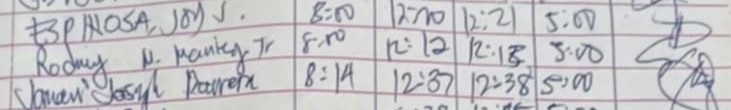 ESPINOSA, JOY J. 8:00 12:20 12:21 5:00
Rodney N. Manley Jr 8:00 12:12 12:13 5:00
8:14 12:37 12:38 5:00